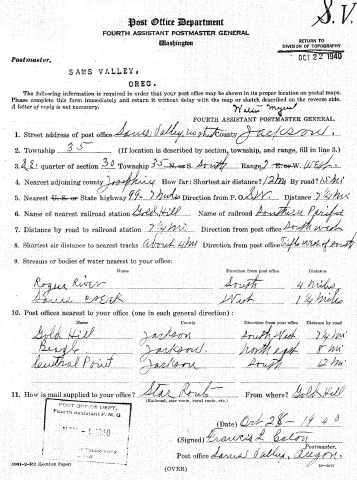 S.V.
Post Office Department
FOURTH ASSISTANT POSTMASTER GENERAL
Washington
RETURN TO
DIVISION OF TOPOGRAPHY
OCT 22 1940
Postmaster,
SAMS VALLEY,
OREG.
The following information is required in order that your post office may be shown in its proper location on postal maps.
Please complete this form immediately and return it without delay with the map or sketch described on the reverse side.
A letter of reply is not necessary.
FOURTH ASSISTANT POSTMASTER GENERAL.
1. Street address of post office Sams Valley, County Jackson.
2. Township 35 (If location is described by section, township, and range, fill in line 3.)
3. S.E. quarter of section 30 Township 35 N. or S. South Range 2 E. or W. West.
4. Nearest adjoining county Josephine How far: Shortest airpart? 12 Mi By road? 15 Mi
5. Nearest U. S. or State highway 99- 7 miles Direction from P. O. S.W. Distance 7¼ Mi
6. Name of nearest railroad station Gold Hill Name of railroad Southern Pacific
7. Distance by road to railroad station 7¼ Mi Direction from post office South west
8. Shortest airpart distance to nearest tracks About 4 Mi Direction from post office of South
9. Streams or bodies of water nearest to your office:
Name Direction from post office Distance
Rogue River South 4 Miles
Sams Creek West 1¼ Miles
10. Post offices nearest to your office (one in each general direction):
Name County Direction from your office Distance by road
Gold Hill Jackson South West 7¼ Mi
Beagle Jackson north east 8 Mi
Central Point Jackson South 12 Mi
11. How is mail supplied to your office? Star Route From where? Gold Hill
(Railroad, star route, rural route, etc.)
POST OFFICE DEPT.
Fourth Assistant P. M. G.
1940
(Date) Oct 28 - 1940
(Signed) Francis L. Eaton
Postmaster.
Post office Sams Valley, Oregon.
(OVER)